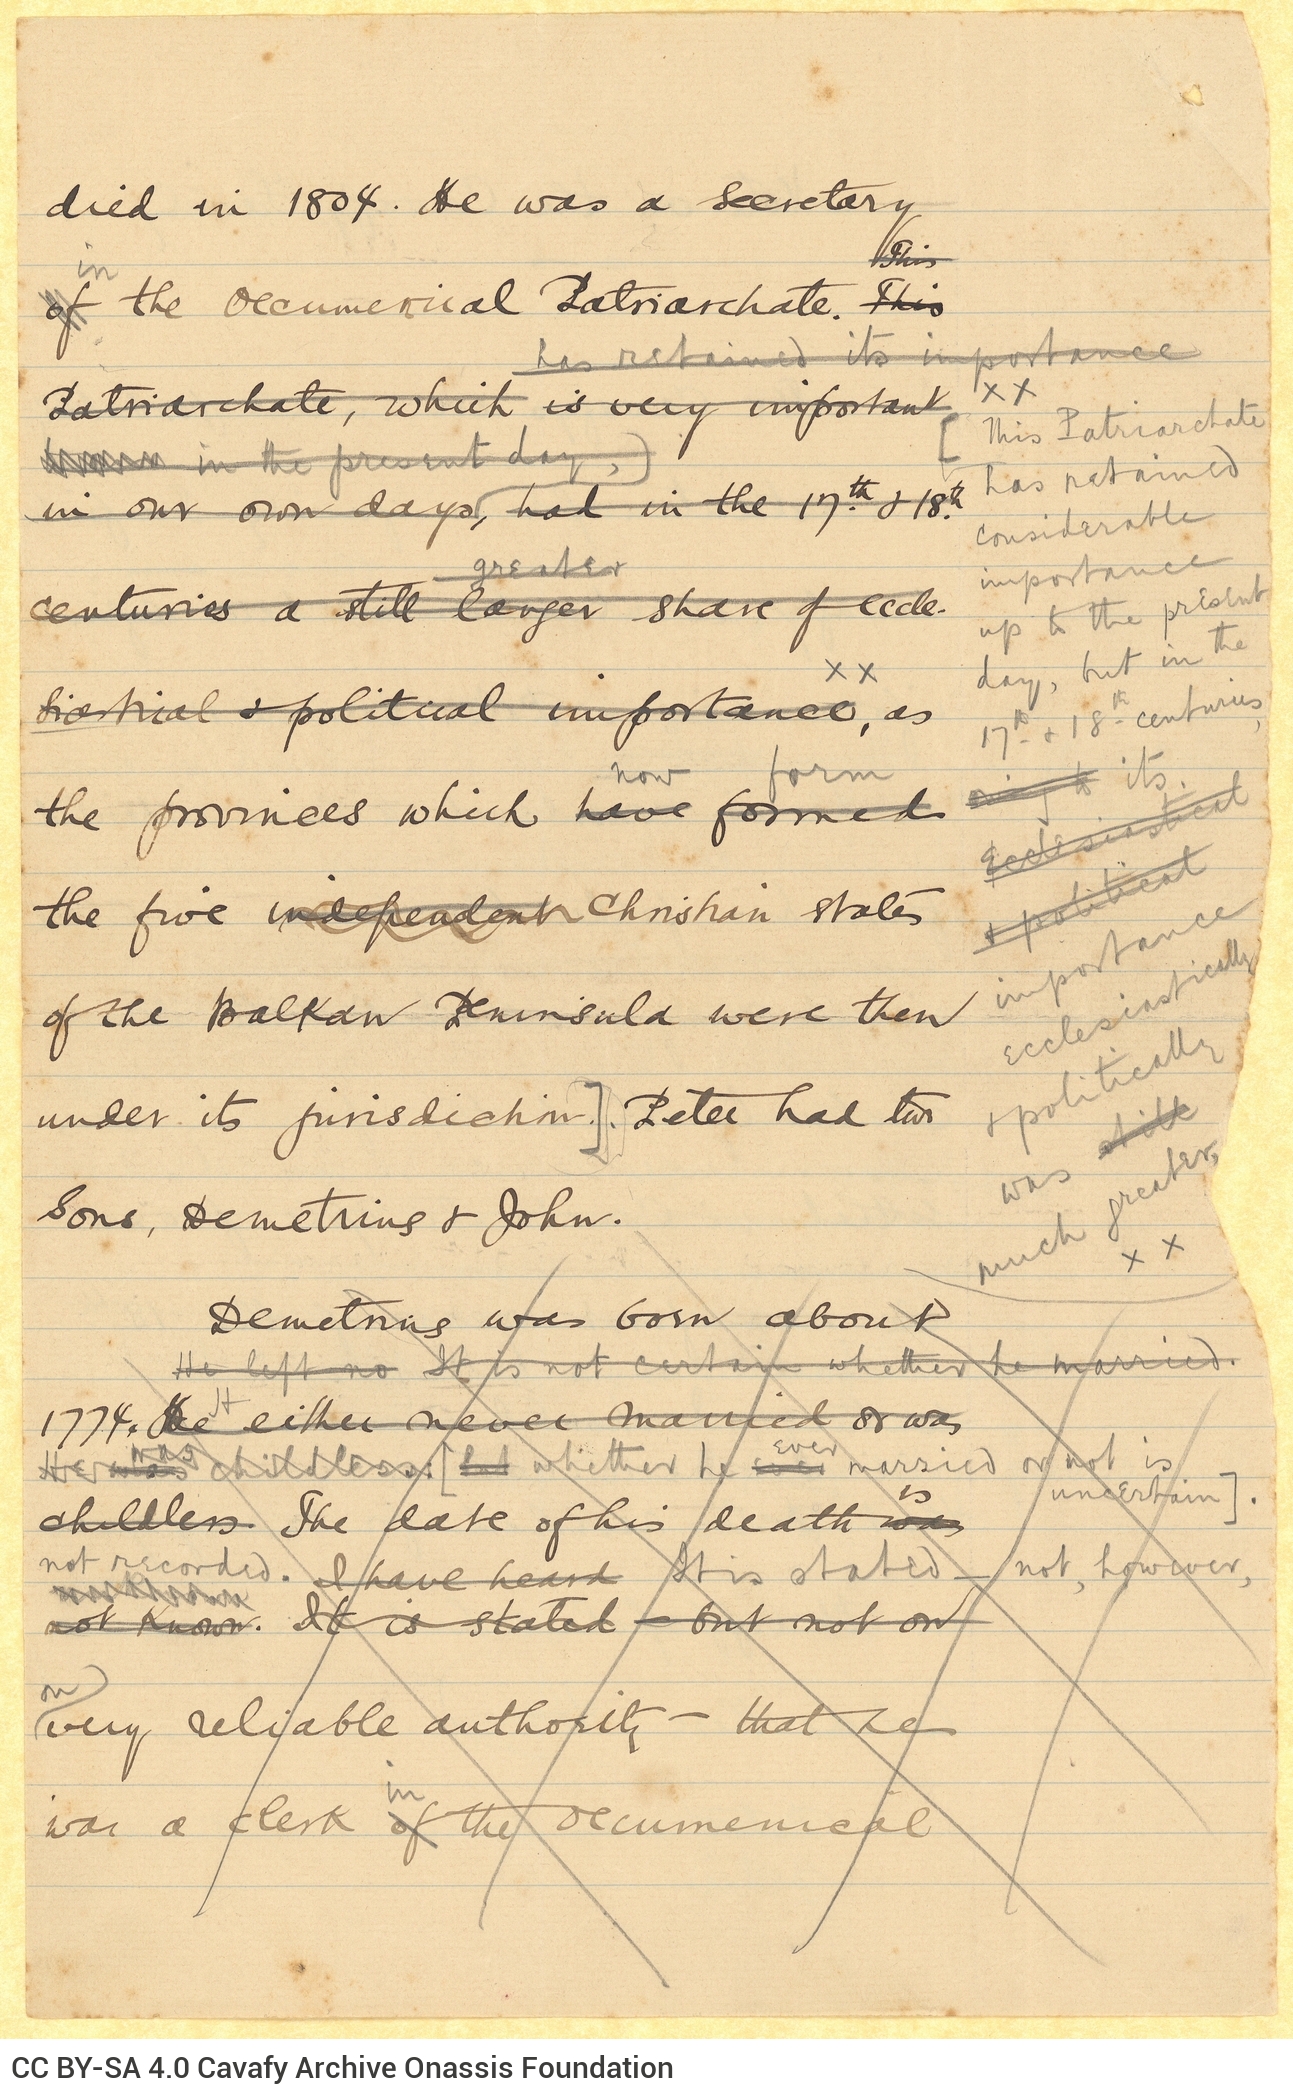 died in 1804. He was a secretary
in This
of the Oecumenical Patriarchate. This
has retained its importance
Patriarchate, which is very important
in the present day,
in our own days, had in the 17th & 18th
greater
centuries a still larger share of eccle-
siastical & political importance, as
x x
now form
the provinces which have formed
the five independent Christian states
of the Balkan Peninsula were then
under its jurisdiction]. Peter had two
Sons, Demetrius & John.
x x
[This Patriarchate
has retained
considerable
importance
up to the present
day, but in the
17th & 18th centuries,
its
Ecclesiastical
& political
importance
ecclesiastically
& politically
was still
much greater,
x x
Demetrius was born about
He left no It is not certain whether he married.
1774. He either never married or was
He was childless. [but whether he ever ever married or not is
uncertain].
is
childless. The date of his death was
not recorded. I have heard It is stated – not, however,
not known. It is stated – but not on
on
very reliable authority – that he
in
was a clerk of the Oecumenical
CC BY-SA 4.0 Cavafy Archive Onassis Foundation